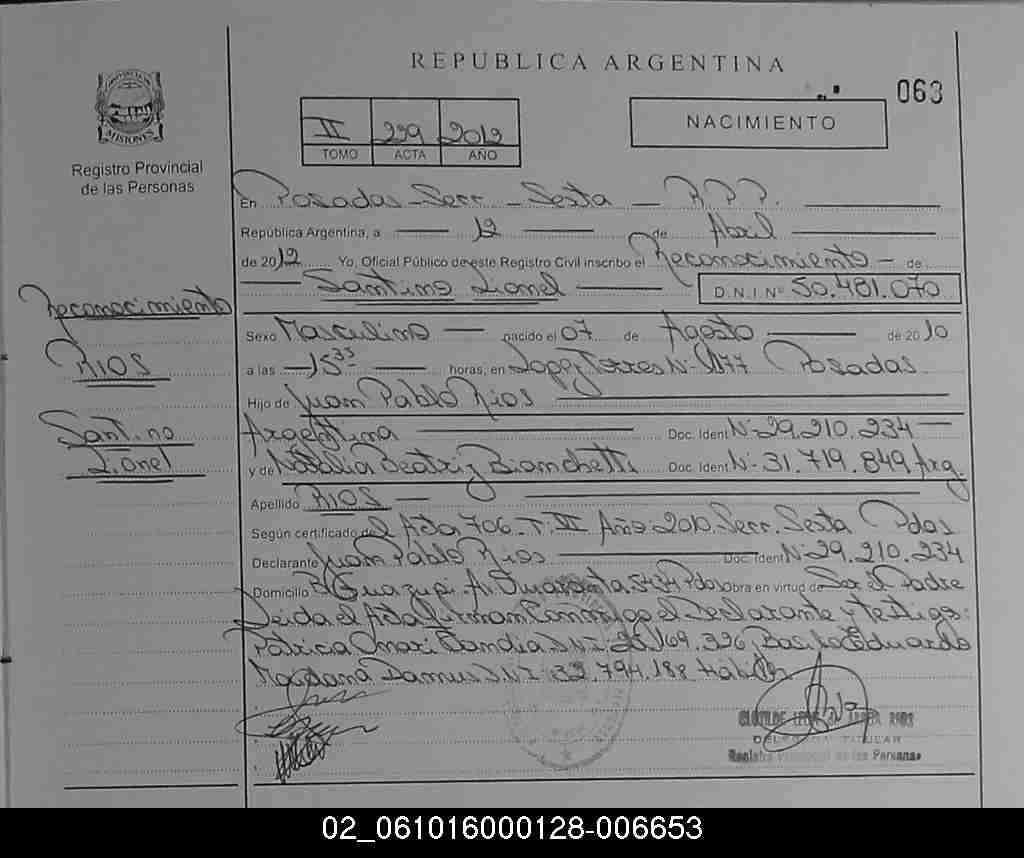 REPUBLICA ARGENTINA
063
PROVINCIA DE
MISIONES
Registro Provincial
de las Personas
II 229 2012
TOMO ACTA AÑO
NACIMIENTO
En Posadas - Secc - Sexta - R.P.P.
República Argentina, a 12 de Abril
de 2012 Yo, Oficial Público de este Registro Civil inscribo el Reconocimiento - de
Santino Lionel D.N.I Nº 50.481.070
Reconocimiento
RIOS
Santino
Lionel
Sexo Masculino nacido el 07 de Agosto de 2010
a las 15 35 horas, en Lopez Torres Nº 1177 Posadas.
Hijo de Juan Pablo Rios
Argentina Doc. Ident Nº 29.210.234
y de Natalia Beatriz Bianchetti Doc. Ident Nº 31.719.849 Arg.
Apellido RIOS
Según certificado del Acta 706. T. III Año 2010. Secc. Sexta Pdas
Declarante Juan Pablo Rios Doc. Ident Nº 29.210.234
Domicilio Bº Guazupi Av. 5434 Pdas obra en virtud de Ser el Padre
Leida el Acta firman Conmigo el Declarante y testigo:
Patricia Mari D.N.I. 20.169.326 Basilio Eduardo
Damus D.N.I: 32.794.188 Habiles
CLOTILDE
DELEGADA TITULAR
Registro Provincial de las Personas
02_061016000128-006653